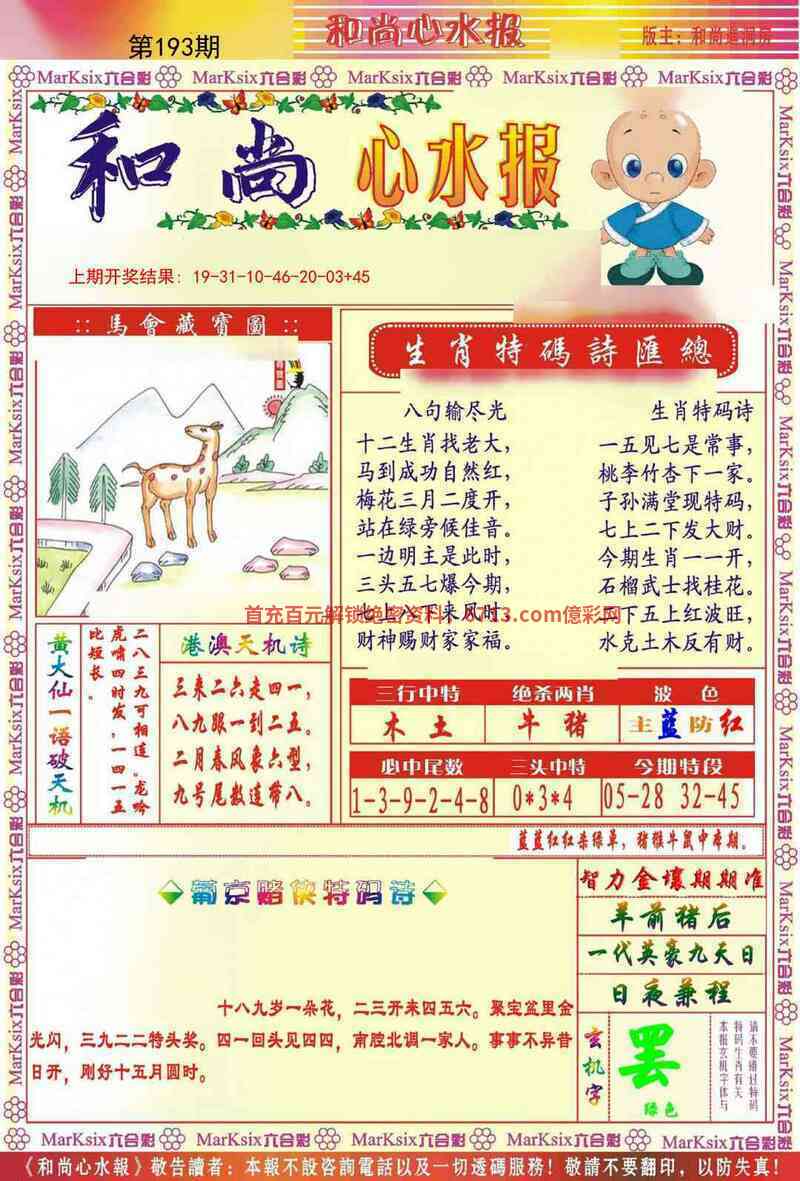 第193期
和尚心水报
版主：和尚进洞房
MarKsix六合彩 MarKsix六合彩 MarKsix六合彩 MarKsix六合彩 MarKsix六合彩
和尚 心水报
上期开奖结果: 19-31-10-46-20-03+45
:: 馬會藏寶圖 ::
生肖特碼詩匯總
八句输尽光
十二生肖找老大，
马到成功自然红，
梅花三月二度开，
站在绿旁候佳音。
一边明主是此时，
三头五七爆今期，
七上八下来风时，
财神赐财家家福。
生肖特码诗
一五见七是常事，
桃李竹杏下一家。
子孙满堂现特码，
七上二下发大财。
今期生肖一一开，
石榴武士找桂花。
下五上红波旺，
水克土木反有财。
首充百元解锁绝密资料
.com億彩网
黄大仙一语破天机
二八三九可相连。龙吟
虎啸四时发，一四一五
比短长。
港澳天机诗
三来二六走四一，
八九跟一到二五。
二月春风象六型，
九号尾数连带八。
三行中特 绝杀两肖 波色
木土 牛猪 主蓝防红
必中尾数 三头中特 今期特段
1-3-9-2-4-8 0*3*4 05-28 32-45
蓝蓝红红杀绿单，猪猴牛鼠中本期。
葡京赌侠特码诗
十八九岁一朵花，二三开来四五六。聚宝盆里金
光闪，三九二二特头奖。四一回头见四四，南腔北调一家人。事事不异昔
日开，刚好十五月圆时。
智力金壤期期准
羊前猪后
一代英豪九天日
日夜兼程
玄机字
罢
绿色
请不要错过特码
特码生肖有关
本报玄机字体与
MarKsix六合彩 MarKsix六合彩 MarKsix六合彩 MarKsix六合彩 MarKsix六合彩
《和尚心水報》敬告讀者：本報不設咨詢電話以及一切透碼服務！敬請不要翻印，以防失真！